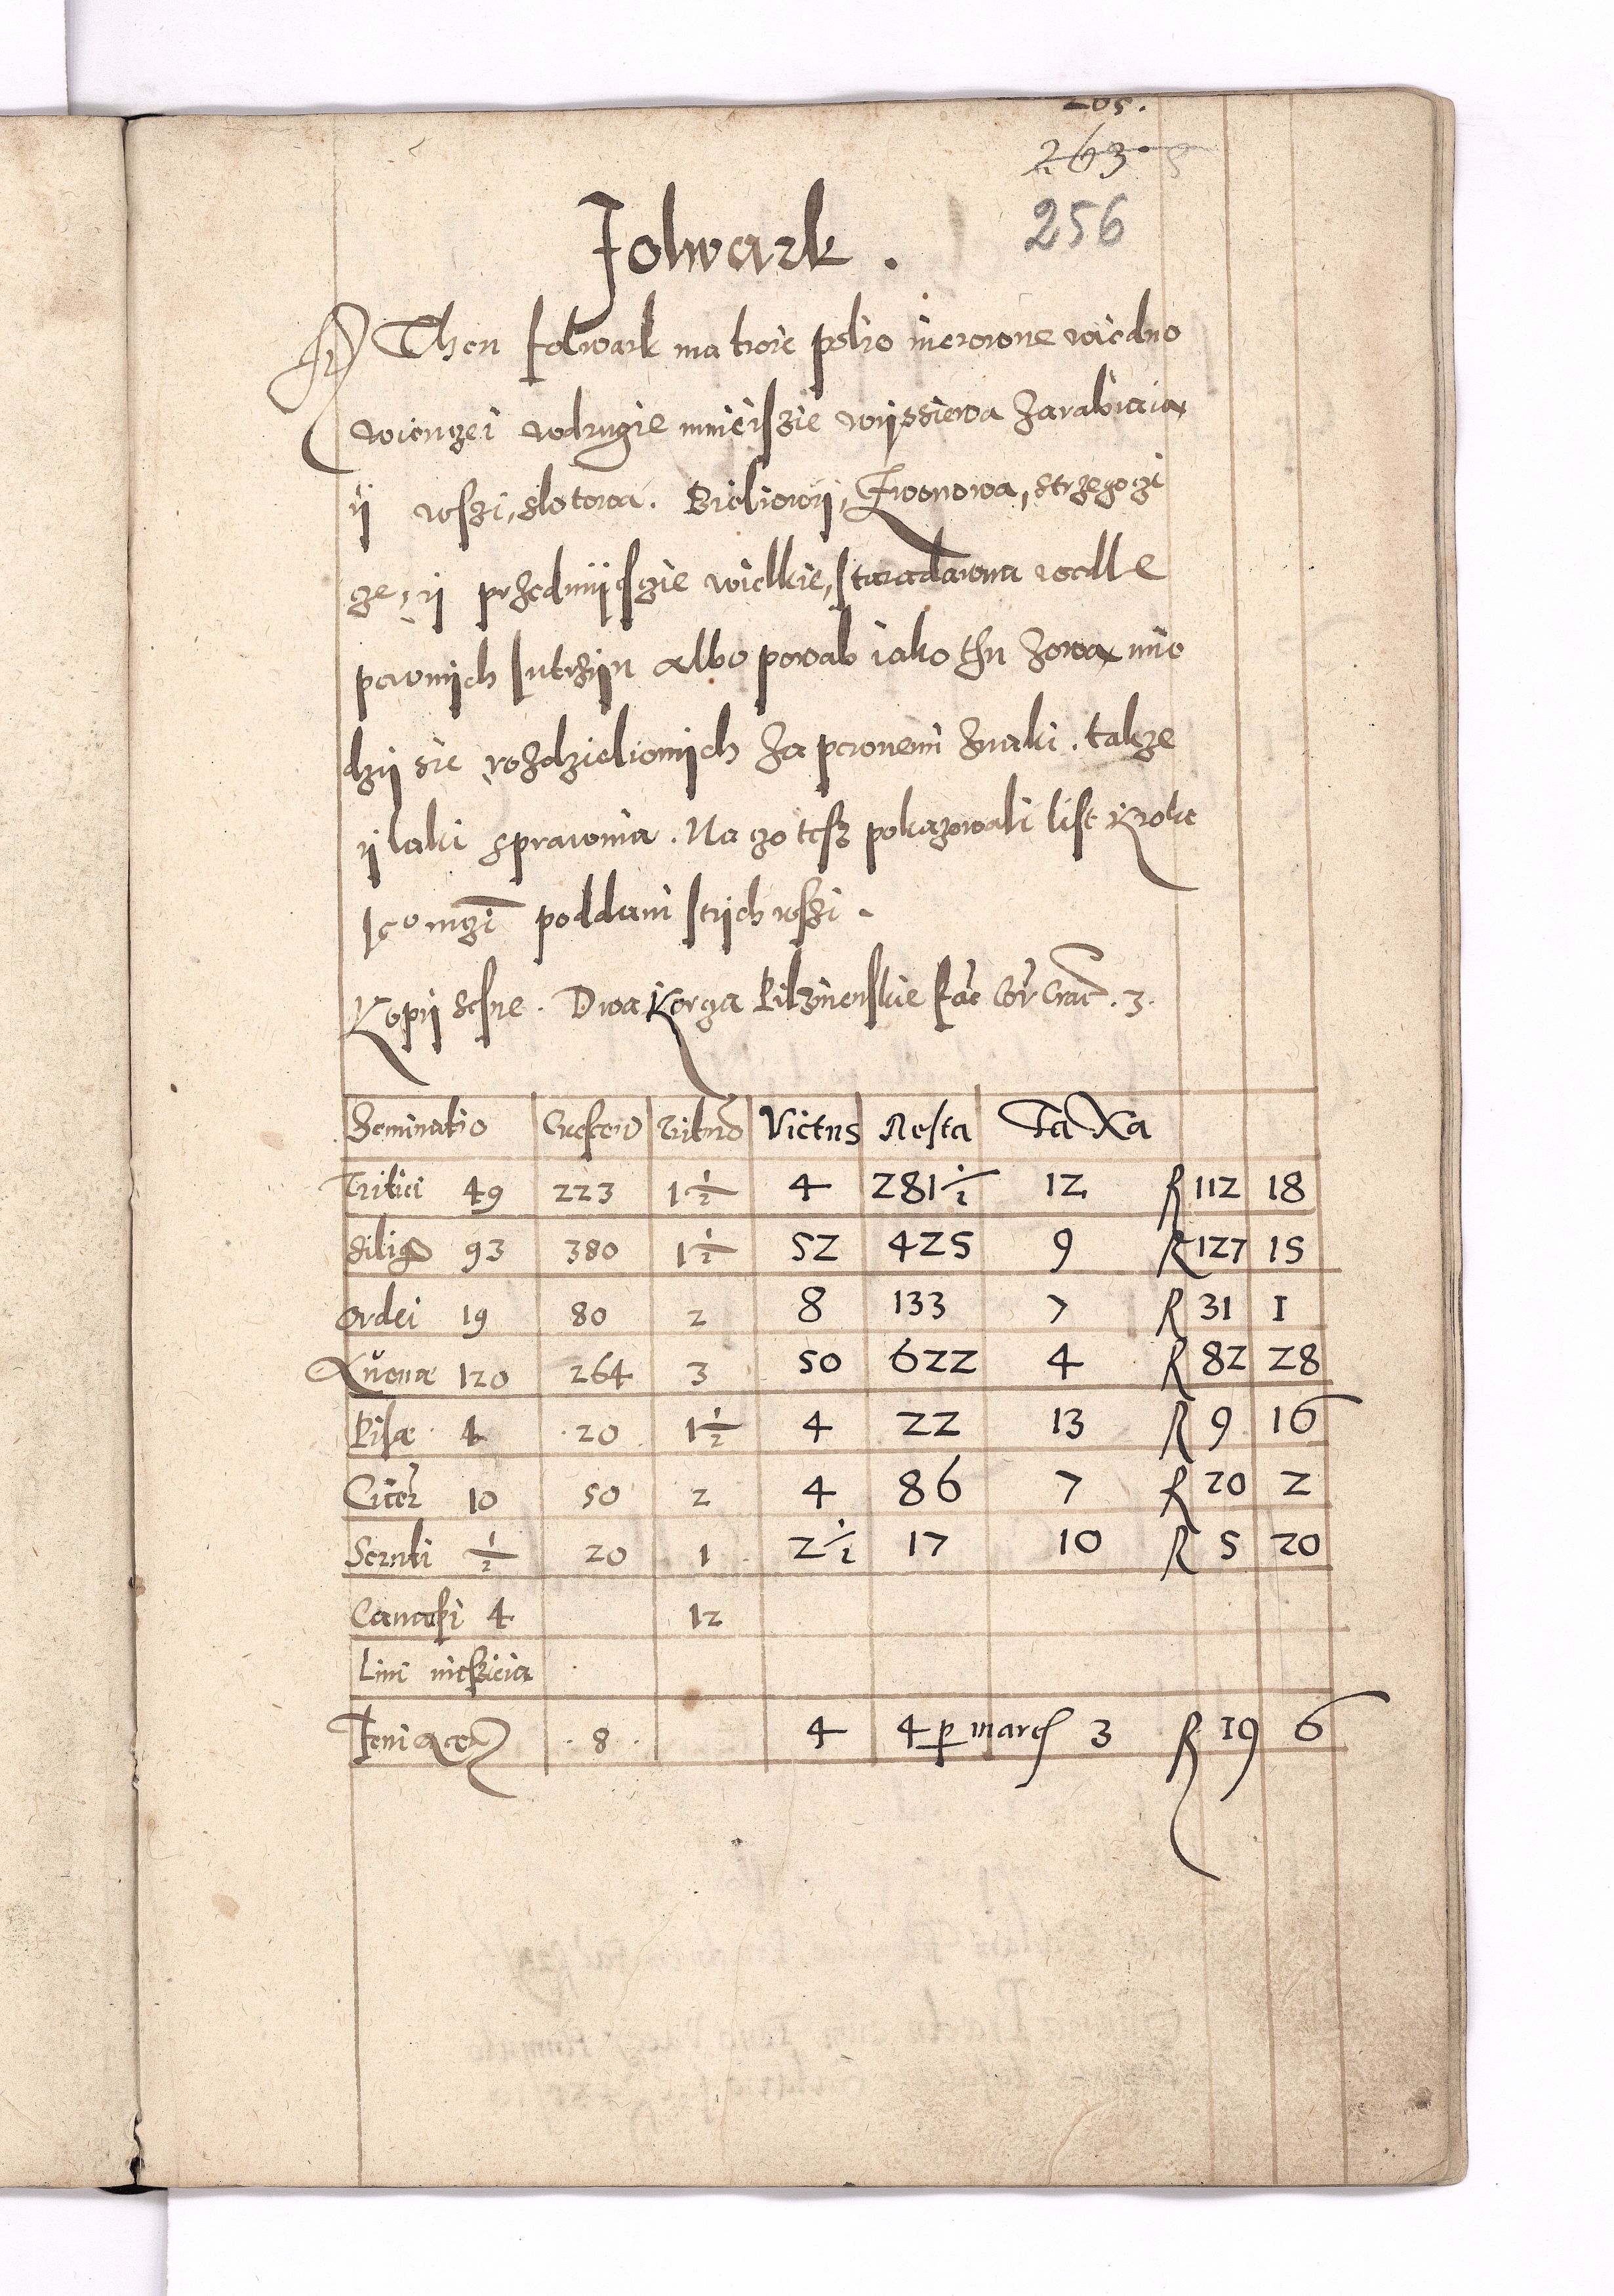 263
256
Folwark.
Then folwark ma troie polio nierowne wiedno
wienzei wdrugie mnieiszie wyssiewa Zarabiaia
ij wszi, slotowa. Bieliowy, Zwonowa, strzegozi
ze, ij przedmijszie wielkie, staradawna wedlle
pewnych Jutrzyn albo powab iako thu Zowa mie
dzy sie rozdzieliomych Za pewnemi Znaki. takze
ij laki sprawuia. Na zo tesz pokazowali list Krole
Je⁰ mzi poddani stych wszi.
Kopy lesne. Dwa Korza Pilznenskie fac Cor Crac. 3.
Seminatio Victus Resta Taxa
Tritici 49 223 1½ 4 281½ 12 R 112 18
Silig 93 380 1½ 52 425 9 R 127 15
Ordei 19 80 2 8 133 7 R 31 1
Avenæ 120 264 3 50 622 4 R 82 28
Pisæ 4 20 1½ 4 22 13 R 9 16
Cicer 10 50 2 4 86 7 R 20 2
½ 20 1 2½ 17 10 R 5 20
Canapi 4 12
Lini nieszieia
Feni 8 4 4 p marc 3 R 19 6